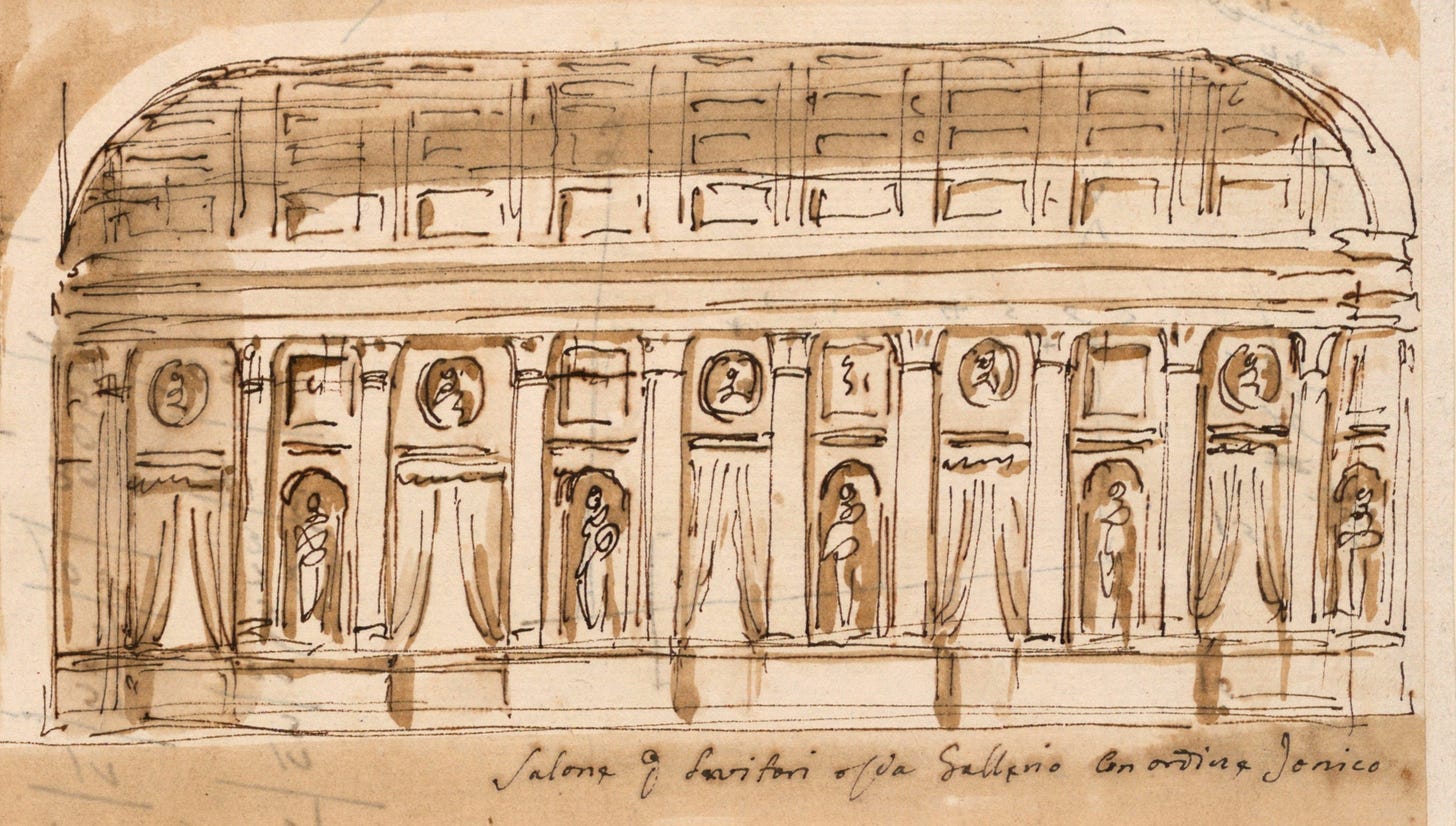 Salone p Invitori ossia Galleria Con ordine Jonico